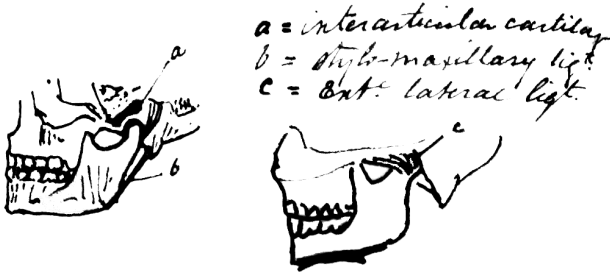 a = interarticular cartilag
b = stylo-maxillary ligt.
c = Extl. lateral ligt.
a
b
c